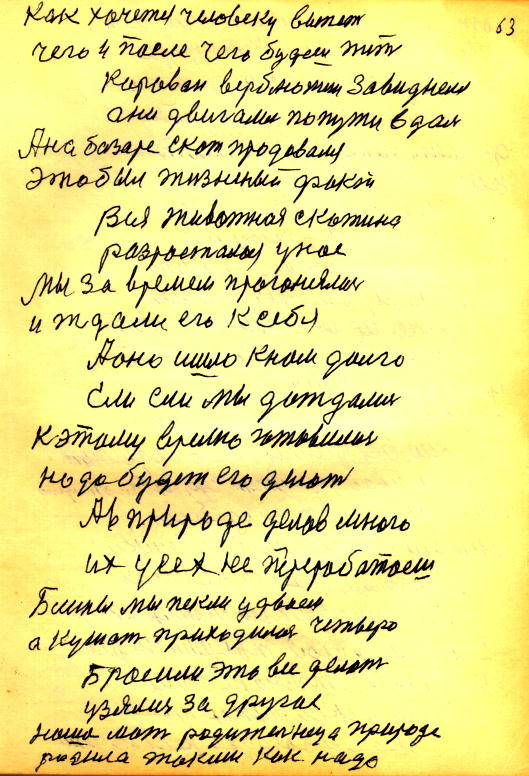 63
Как хочетя человеку витат
чего и после чего будем жит
Караван верблюжии завиднели
они двигалия попути вдал
Ана базаре скот продоваля
Этобыл жизненый факт
Вся животная скотина
разросталая унас
Мы за времем прогонялия
и ждали его ксебя
Аоно ишло кнам долго
Ели ели мы дождалия
Кэтому времю готовилия
надо будет его делат
Ав природе делов много
их усех не переработаеш
Блины мы пекли удвоем
а кушат приходилия четверо
Бросили это все делат
узялия за другое
наша мат родителница природе
родила такими как надо